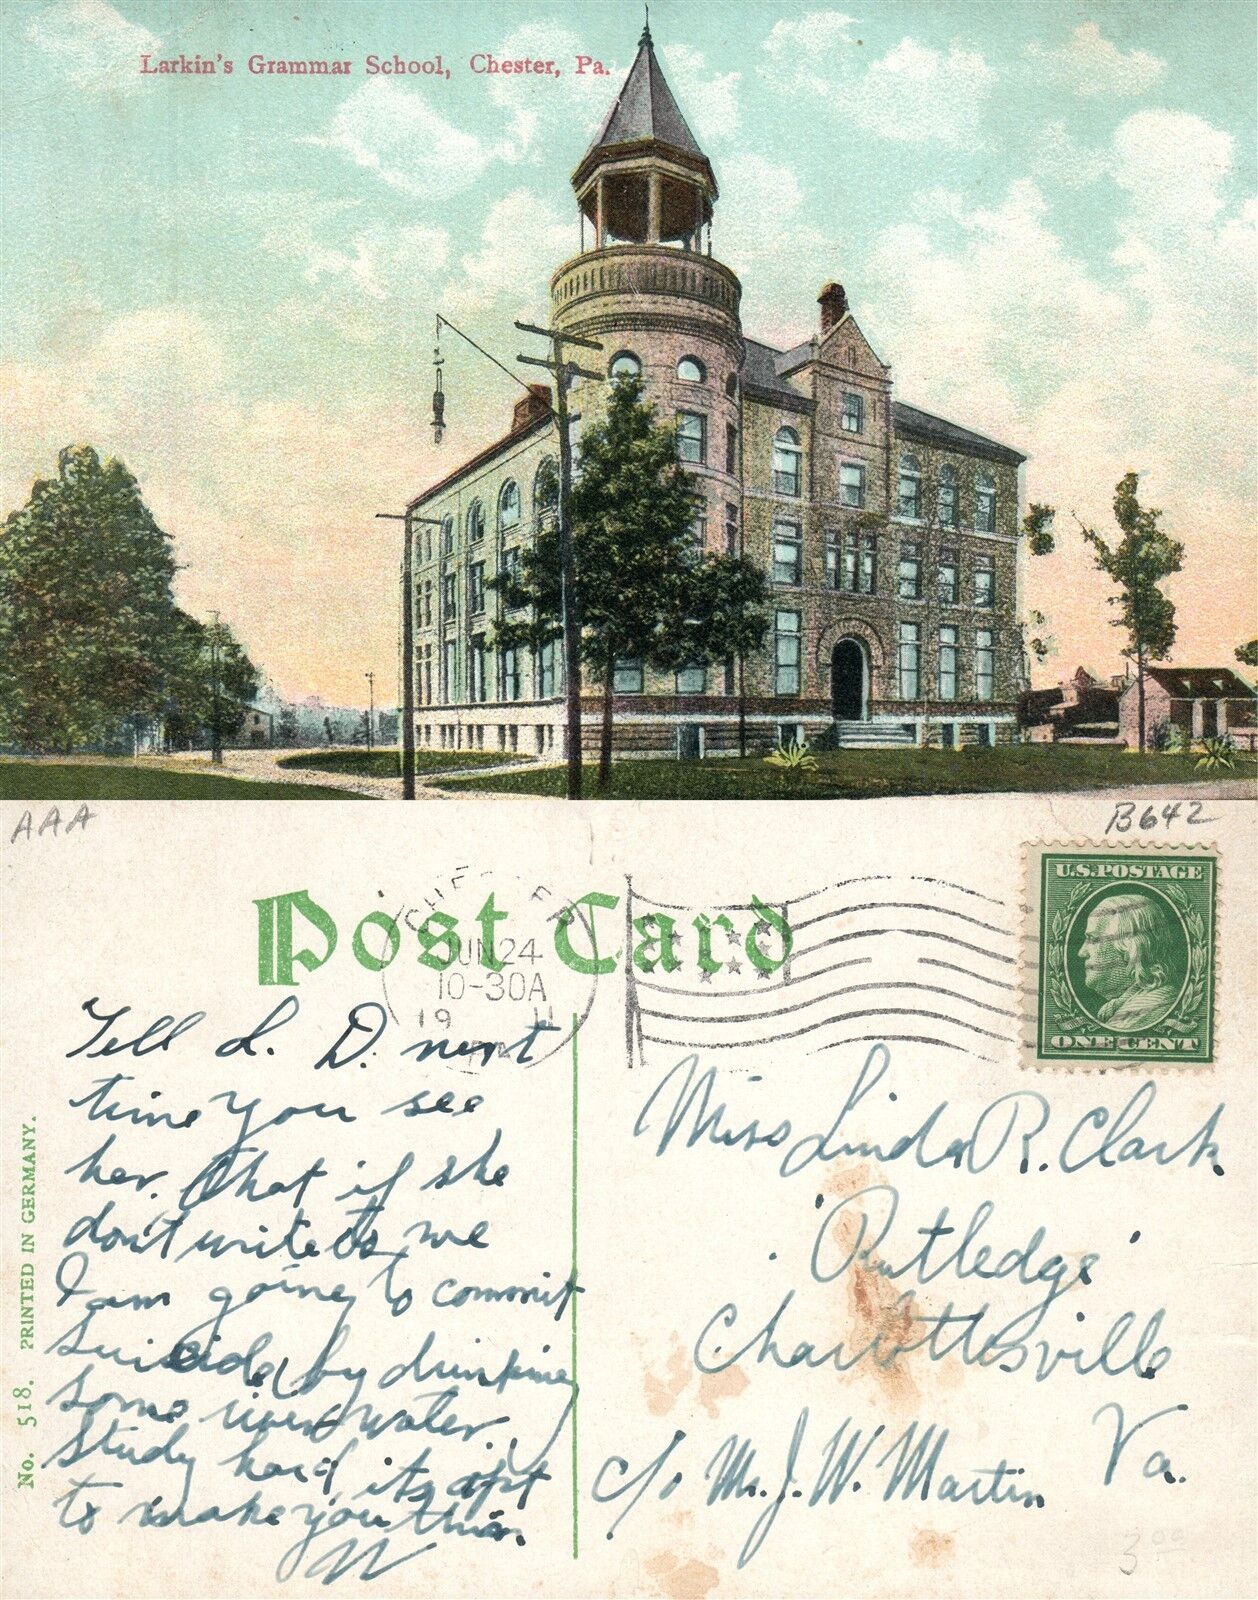 Larkin's Grammar School, Chester, Pa.
AAA
B642
U.S. POSTAGE
ONE CENT
Post Card
CHESTER
JUN 24
10-30A
1911
PA
Tell L. D. next
time you see
her. That if she
don't write to me
I am going to commit
suicide by drinking
some river water.
Study hard, its apt
to make you thin.
W
Miss Linda R. Clark
"Rutledge"
Charlottesville
Va.
c/o Mr. J. W. Martin
3 00
No. 518. PRINTED IN GERMANY.